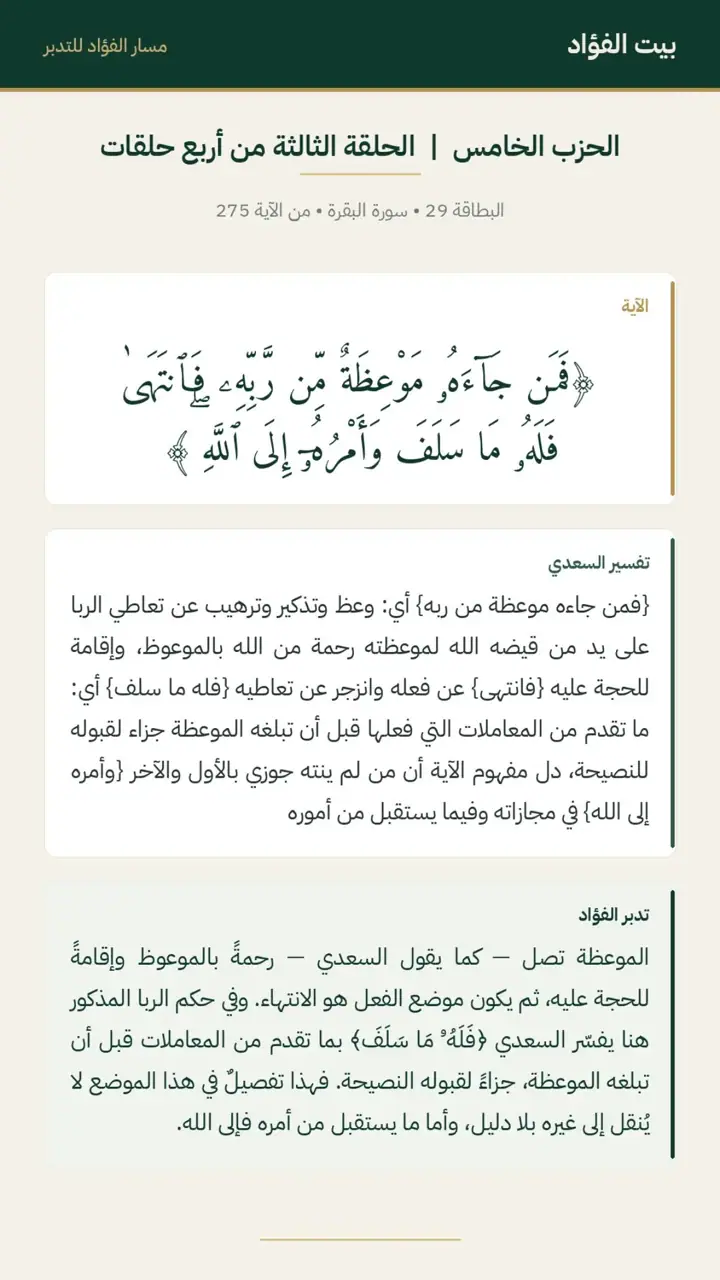 بيت الفؤاد
مسار الفؤاد للتدبر
الحزب الخامس | الحلقة الثالثة من أربع حلقات
البطاقة 29 • سورة البقرة • من الآية 275
الآية
﴿فَمَن جَآءَهُۥ مَوْعِظَةٌ مِّن رَّبِّهِۦ فَٱنتَهَىٰ
فَلَهُۥ مَا سَلَفَ وَأَمْرُهُۥٓ إِلَى ٱللَّهِۖ ﴾
تفسير السعدي
{فمن جاءه موعظة من ربه} أي: وعظ وتذكير وترهيب عن تعاطي الربا
على يد من قيضه الله لموعظته رحمة من الله بالموعوظ، وإقامة
للحجة عليه {فانتهى} عن فعله وانزجر عن تعاطيه {فله ما سلف} أي:
ما تقدم من المعاملات التي فعلها قبل أن تبلغه الموعظة جزاء لقبوله
للنصيحة، دل مفهوم الآية أن من لم ينته جوزي بالأول والآخر {وأمره
إلى الله} في مجازاته وفيما يستقبل من أموره
تدبر الفؤاد
الموعظة تصل — كما يقول السعدي — رحمةً بالموعوظ وإقامةً
للحجة عليه، ثم يكون موضع الفعل هو الانتهاء. وفي حكم الربا المذكور
هنا يفسّر السعدي ﴿فَلَهُۥ مَا سَلَفَ﴾ بما تقدم من المعاملات قبل أن
تبلغه الموعظة، جزاءً لقبوله النصيحة. فهذا تفصيلٌ في هذا الموضع لا
يُنقل إلى غيره بلا دليل، وأما ما يستقبل من أمره فإلى الله.